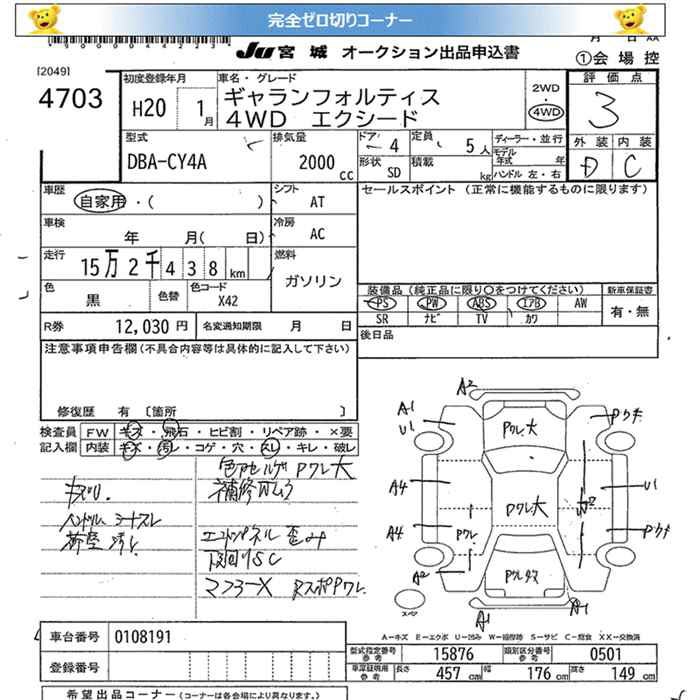 完全ゼロ切りコーナー
JU 宮城 オークション出品申込書
月 日
①会場控
[2049]
4703
初度登録年月
H20 1月
車名・グレード
ギャランフォルティス
4WD エクシード
2WD
・
4WD
評価点
3
外装 内装
D C
型式
DBA-CY4A
排気量
2000 cc
ドア 4
形状 SD
定員 5人
積載 kg
ディーラー・並行
モデル年式 年
ハンドル 左・右
車歴
自家用・( )
シフト AT
セールスポイント (正常に機能するものに限ります)
車検
年 月( 日)
冷房 AC
走行
15万2千438km
燃料
ガソリン
色 黒
色替
色コード X42
装備品 (純正品に限り〇をつけてください)
PS PW ABS エアB AW
SR ナビ TV カワ
新車保証書
有・無
R券 12,030円
名変通知期限 月 日
後日品
注意事項申告欄 (不具合内容等は具体的に記入して下さい)
修復歴 有 〔箇所 〕
検査員記入欄
FW キズ・飛石・ヒビ割・リペア跡・×要
内装 キズ・汚レ・コゲ・穴・スレ・キレ・破レ
色アセ ハゲ Pワレ大
補修ムラ
キズリ.
ハンドル シートスレ
荷室 汚レ
エンドパネル 歪み
下回りSC
マフラーX Rスポイワレ.
A2
A1
U1
Pワレ大
Pウキ
A4
A4
Pワレ大
Pワレ
U1
W2
Pウキ
A2
Pワレ
A1
A1
スペア
A-キズ E-エクボ U-凹み W-補修跡 S-サビ C-腐食 XX-交換済
車台番号 0108191
登録番号
型式指定番号 参考 15876
類別区分番号 参考 0501
車庫証明用 参考 長さ 457cm 幅 176cm 高さ 149cm
希望出品コーナー (コーナーは各会場により異なります。)